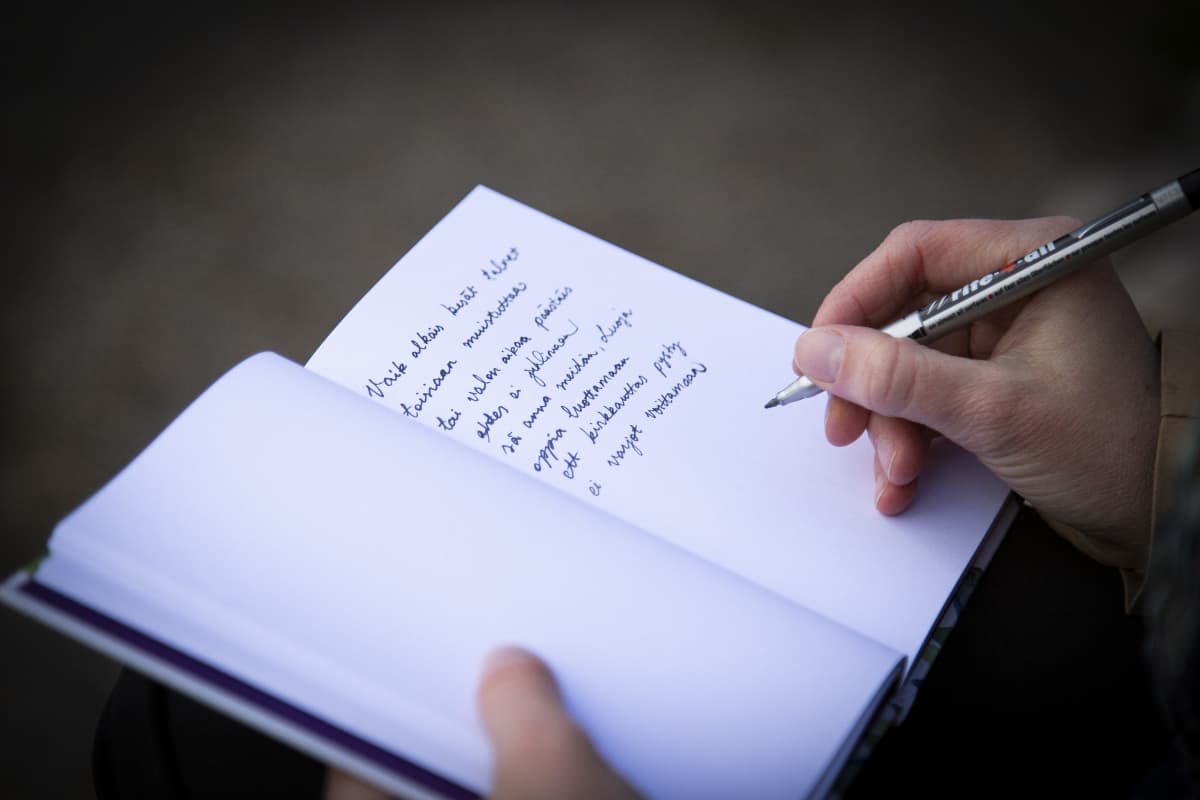 Vaik alkais kesät talvet
toisiaan muistuttaa
tai valon aikaa päästäis
ei
sä anna meidän, Luoja
oppia luottamaan
ett kirkkautta pysty
ei varjot voittamaan
rite
all